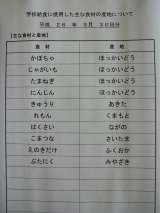 学校給食に使用した主な食材の産地について
平成 26 年 9月 30日分
【主な食材と産地】
食 材 産 地
かぼちゃ ほっかいどう
じゃがいも ほっかいどう
たまねぎ ほっかいどう
にんじん ほっかいどう
きゅうり あきた
れもん くまもと
はくさい ながの
こまつな さいたま
えのきだけ ふくおか
ぶたにく みやざき